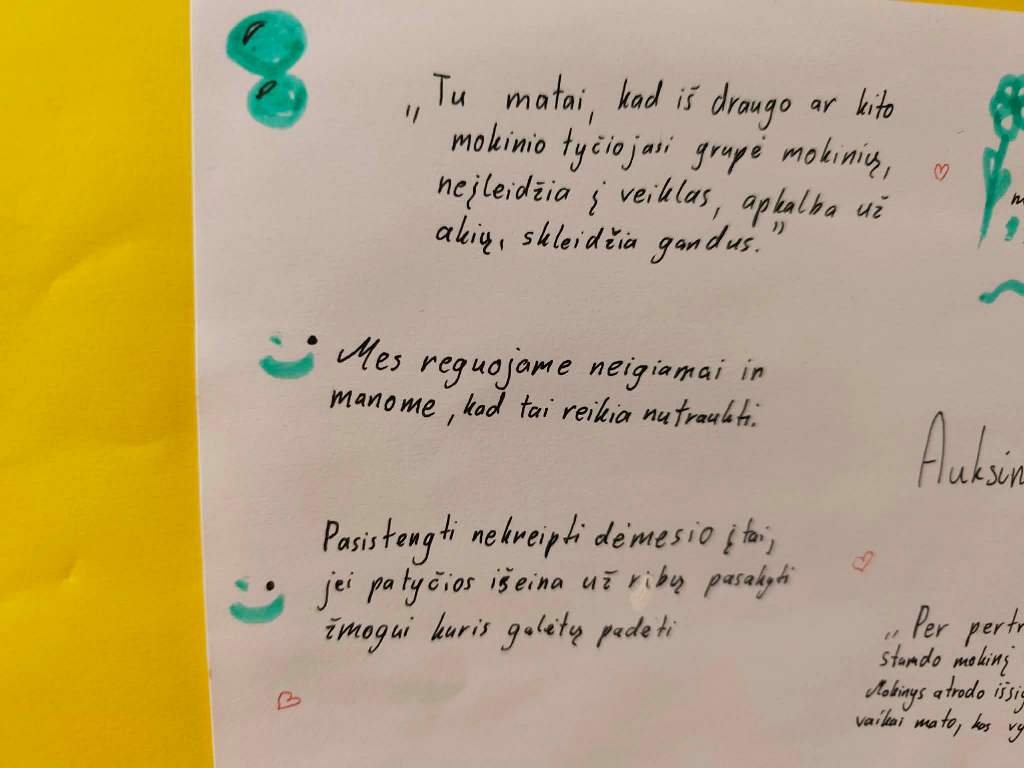 „Tu matai, kad iš draugo ar kito
mokinio tyčiojasi grupė mokinių,
neįleidžia į veiklas, apkalba už
akių, skleidžia gandus."
Mes reguojame neigiamai ir
manome, kad tai reikia nutraukti.
Pasistengti nekreipti dėmesio į tai,
jei patyčios išeina už ribų pasakyti
žmogui kuris galėtų padėti
Auksin
„Per pertr
stumdo mokinį
Mokinys atrodo išsig
vaikai mato, kas vy